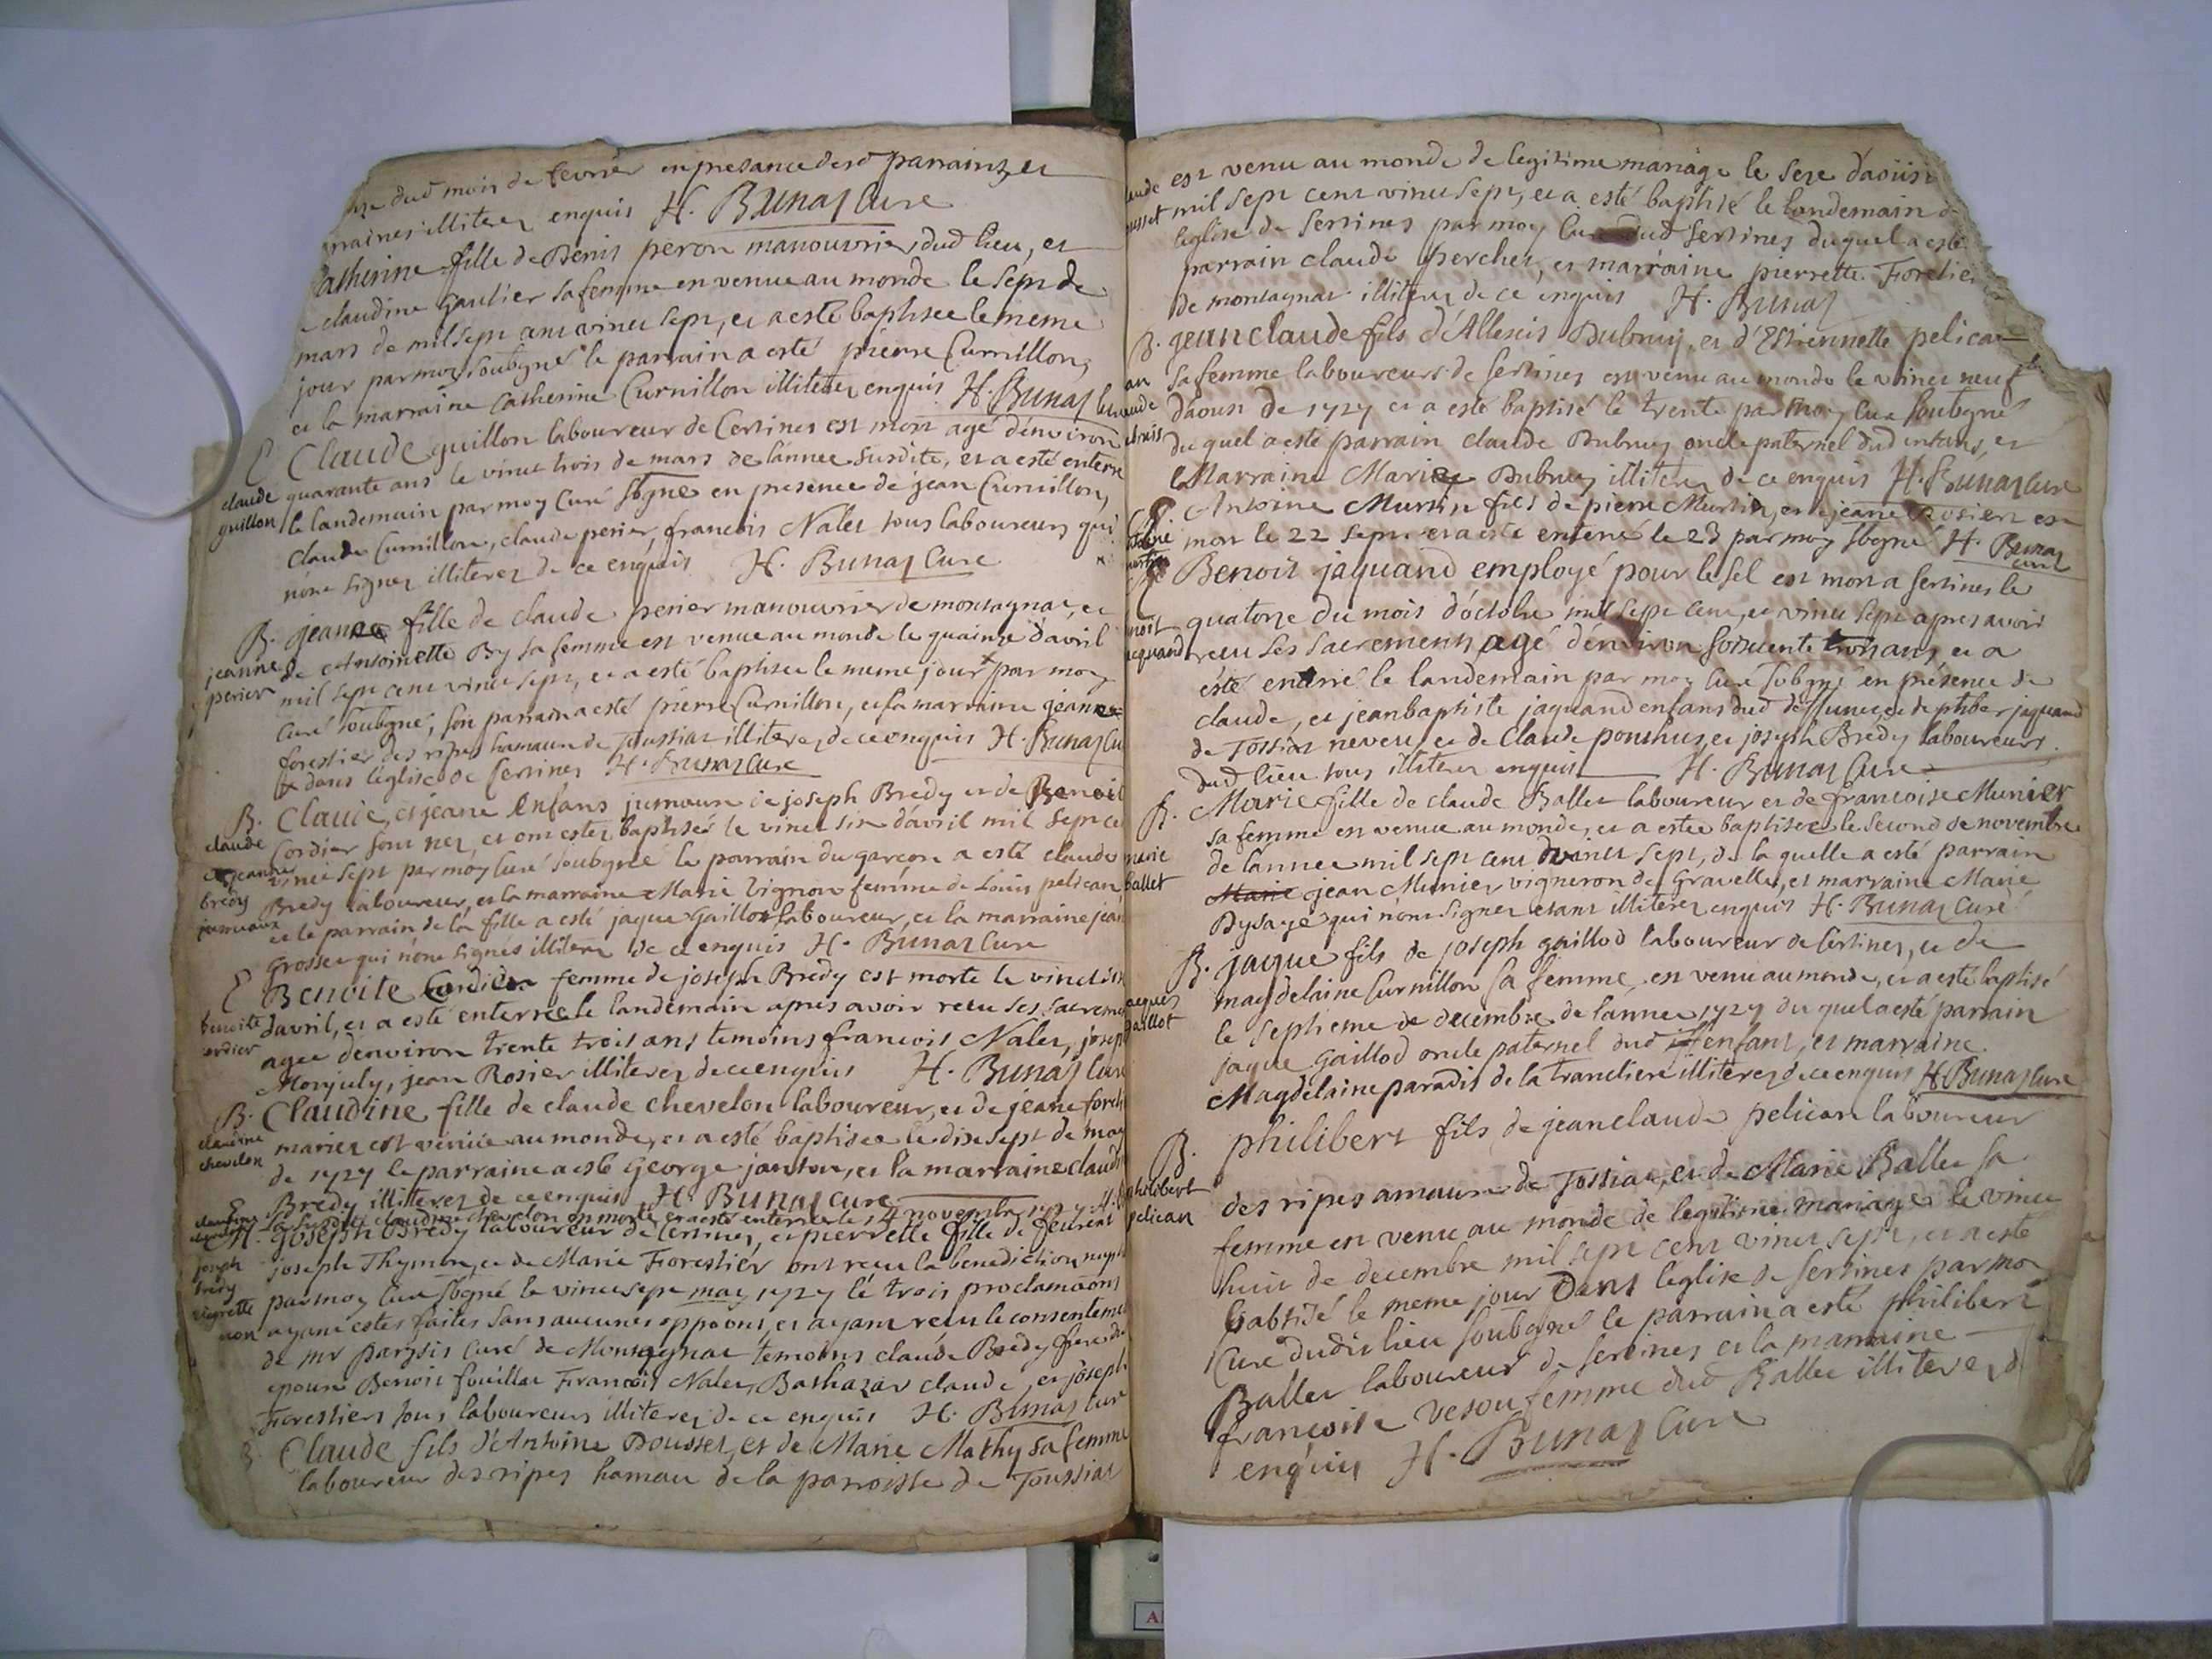 dud mois de fevrier en presance desd parrainz et
marraines illiterez enquis H. Bunaz Curé
Catherine fille de Denis peron manouvrier dud lieu, et
claudine Gautier sa femme en venue au monde le sept de
mars de mil sept cent vinct sept, et a esté baptisee le meme
jour par moy soubgné le parrain a esté pierre Curnillon,
et la marraine Catherine Curnillon illiterez enquis H. Bunaz
E Claude guillon laboureur de Certines est mort agé d'environ
claude guillon
quarante ans le vinct trois de mars de l'année susdite, et a esté enterré
le landemain par moy Curé sbgné en presence de jean Curnillon,
Claude Curnillon, claude perier, francois Nalet tous laboureurs qui
n'ont signez illiterez de ce enquis H. Bunaz Cure
B. jeanne fille de claude perier manouvrier de montagnat, et
jeanne perier
de Antoinette By sa femme est venue au monde le quainze d'avril
mil sept cent vinct sept, et a esté baptisee le meme jour x par moy
Curé soubgné, son parrain a esté pierre Curnillon, et la marraine jeanne
forestier des ripes hamaux de Toussiat illiterez de ce enquis H. Bunaz Cu
x dans l'eglise de Certines H. Bunaz Cure
B. Claude, et jeane enfans jumaux de joseph Bredy et de Benoit
claude et jeanne bredy jumeaux
Cordier sont nez, et ont estez baptisés le vinct six d'avril mil sept ce
vinct sept par moy Curé soubgné le parrain du garcon a esté claude
Bredy laboureur, et la marraine Marie Vignon femme de Louis pelican
et le parrain de la fille a esté jaque gaillot laboureur, et la marraine jean
Grosset qui n'ont signés illiterez de ce enquis H. Bunaz Cure
E Benoite Cordier femme de joseph Bredy est morte le vinct six
benoite cordier
d'avril, et a esté enterrée le landemain apres avoir receu ses sacremen
agee d'environ trente trois ans temoins francois Nalet, josep
Monjuly, jean Rosier illiterez de ce enquis H. Bunaz Cure
B. Claudine fille de claude chevelon laboureur, et de jeane
claudine chevelon
mariez est venüe au monde, et a esté baptisee le dix sept de may
de 1727 le parraine a esté George janton, et la marraine claud
Bredy illiterez de ce enquis H. Bunaz Cure
E La susdite claudine chevelon est morte, et a esté enterrée le 14 novembre 1727 H.
M. joseph Bredy laboureur de Certines, et pierrette fille de feurent
joseph bredy
joseph Thymbre, et de Marie Forestier ont receu la benediction nupt
par moy Cure sbgné le vinct sept may 1727 le trois proclamaons
ayant estes faites sans aucunes oppoons, et ayant receu le consenteme
de mr parisis curé de Montagnat temoins claude Bredy frere du
epoux Benoit fouillat Francois Nalet, Bathazar claude, et joseph
Forestiers tous laboureurs illiterez de ce enquis H. Bunaz Cure
B. Claude fils d'Antoine Dousset, et de Marie Mathy sa femme
laboureur des ripes hamau de la paroisse de Toussiat
est venu au monde de legitime mariage le seze d'aoüst
mil sept cent vinct sept, et a esté baptisé le landemain d
l'eglise de Sertines par moy Curé dud Sertines duquel a esté
parrain claude perchet, et marraine pierrette Forestier
de montagnat illiterez de ce enquis H. Bunaz
B. jeanclaude fils d'Allexis Dubruy, et d'Estiennette pelican
sa femme laboureurs de Sertines est venu au monde le vinct neuf
d'aoust de 1727 et a esté baptisé le trente par moy Cure soubgné
duquel a esté parrain claude Dubruy oncle paternel dud enfans, et
Marraine Marie Dubruy illiterez de ce enquis H. Bunaz Cure
Antoine Murtin fils de pierre Murtin, et de jeane Rosier est
mort le 22 sept. et a esté enterré le 23 par moy sbgné H. Bunaz
curé
Benoit jaquand employé pour le sel est mort a Sertines le
benoit jacquand
quatorze du mois d'octobre mil sept cent, et vinct sept apres avoir
receu ses sacremens agé d'environ soixcente trois ans, et a
esté enterré le landemain par moy Curé sobgné en présence de
claude, et jeanbaptiste jaquand enfans dud deffunct, et de phber jaquand
de Tossiat neveu, et de Claude ponthus, et joseph Bredy laboureurs
dud lieu tous illiterez enquis H. Bunaz Cure
B. Marie fille de claude Ballet laboureur et de francoise Munier
marie ballet
sa femme est venue au monde, et a estee baptisee le second de novembre
de l'annee mil sept cent vinct sept, de la quelle a esté parrain
Marie jean Munier vigneron de Gravelle, et marraine Marie
Dysage qui n'ont signez estans illiterez enquis H. Bunaz Curé
B. jaque fils de joseph gaillod laboureur de Certines, et de
jacques gaillot
magdelaine Curnillon sa femme est venu au monde, et a esté baptisé
le septieme de decembre de l'annee 1727 du quel a esté parrain
jaque Gaillod oncle paternel dud enfant, et marraine
Magdelaine paradis de la tranclière illiterez de ce enquis H. Bunaz Cure
B. philibert fils de jeanclaude pelican laboureur
philibert pelican
des ripes amaux de Tossiat, et de Marie Ballet sa
femme est venu au monde de legitime mariage le vinct
huit de decembre mil sept cent vinct sept, et a esté
babtisé le meme jour dans l'eglise de Sertines par moy
Cure dudit lieu soubgné le parrain a esté philibert
Ballet laboureur de Sertines et la marraine
francoise vesou femme dud Ballet illiterez d
enquis H. Bunaz Cure